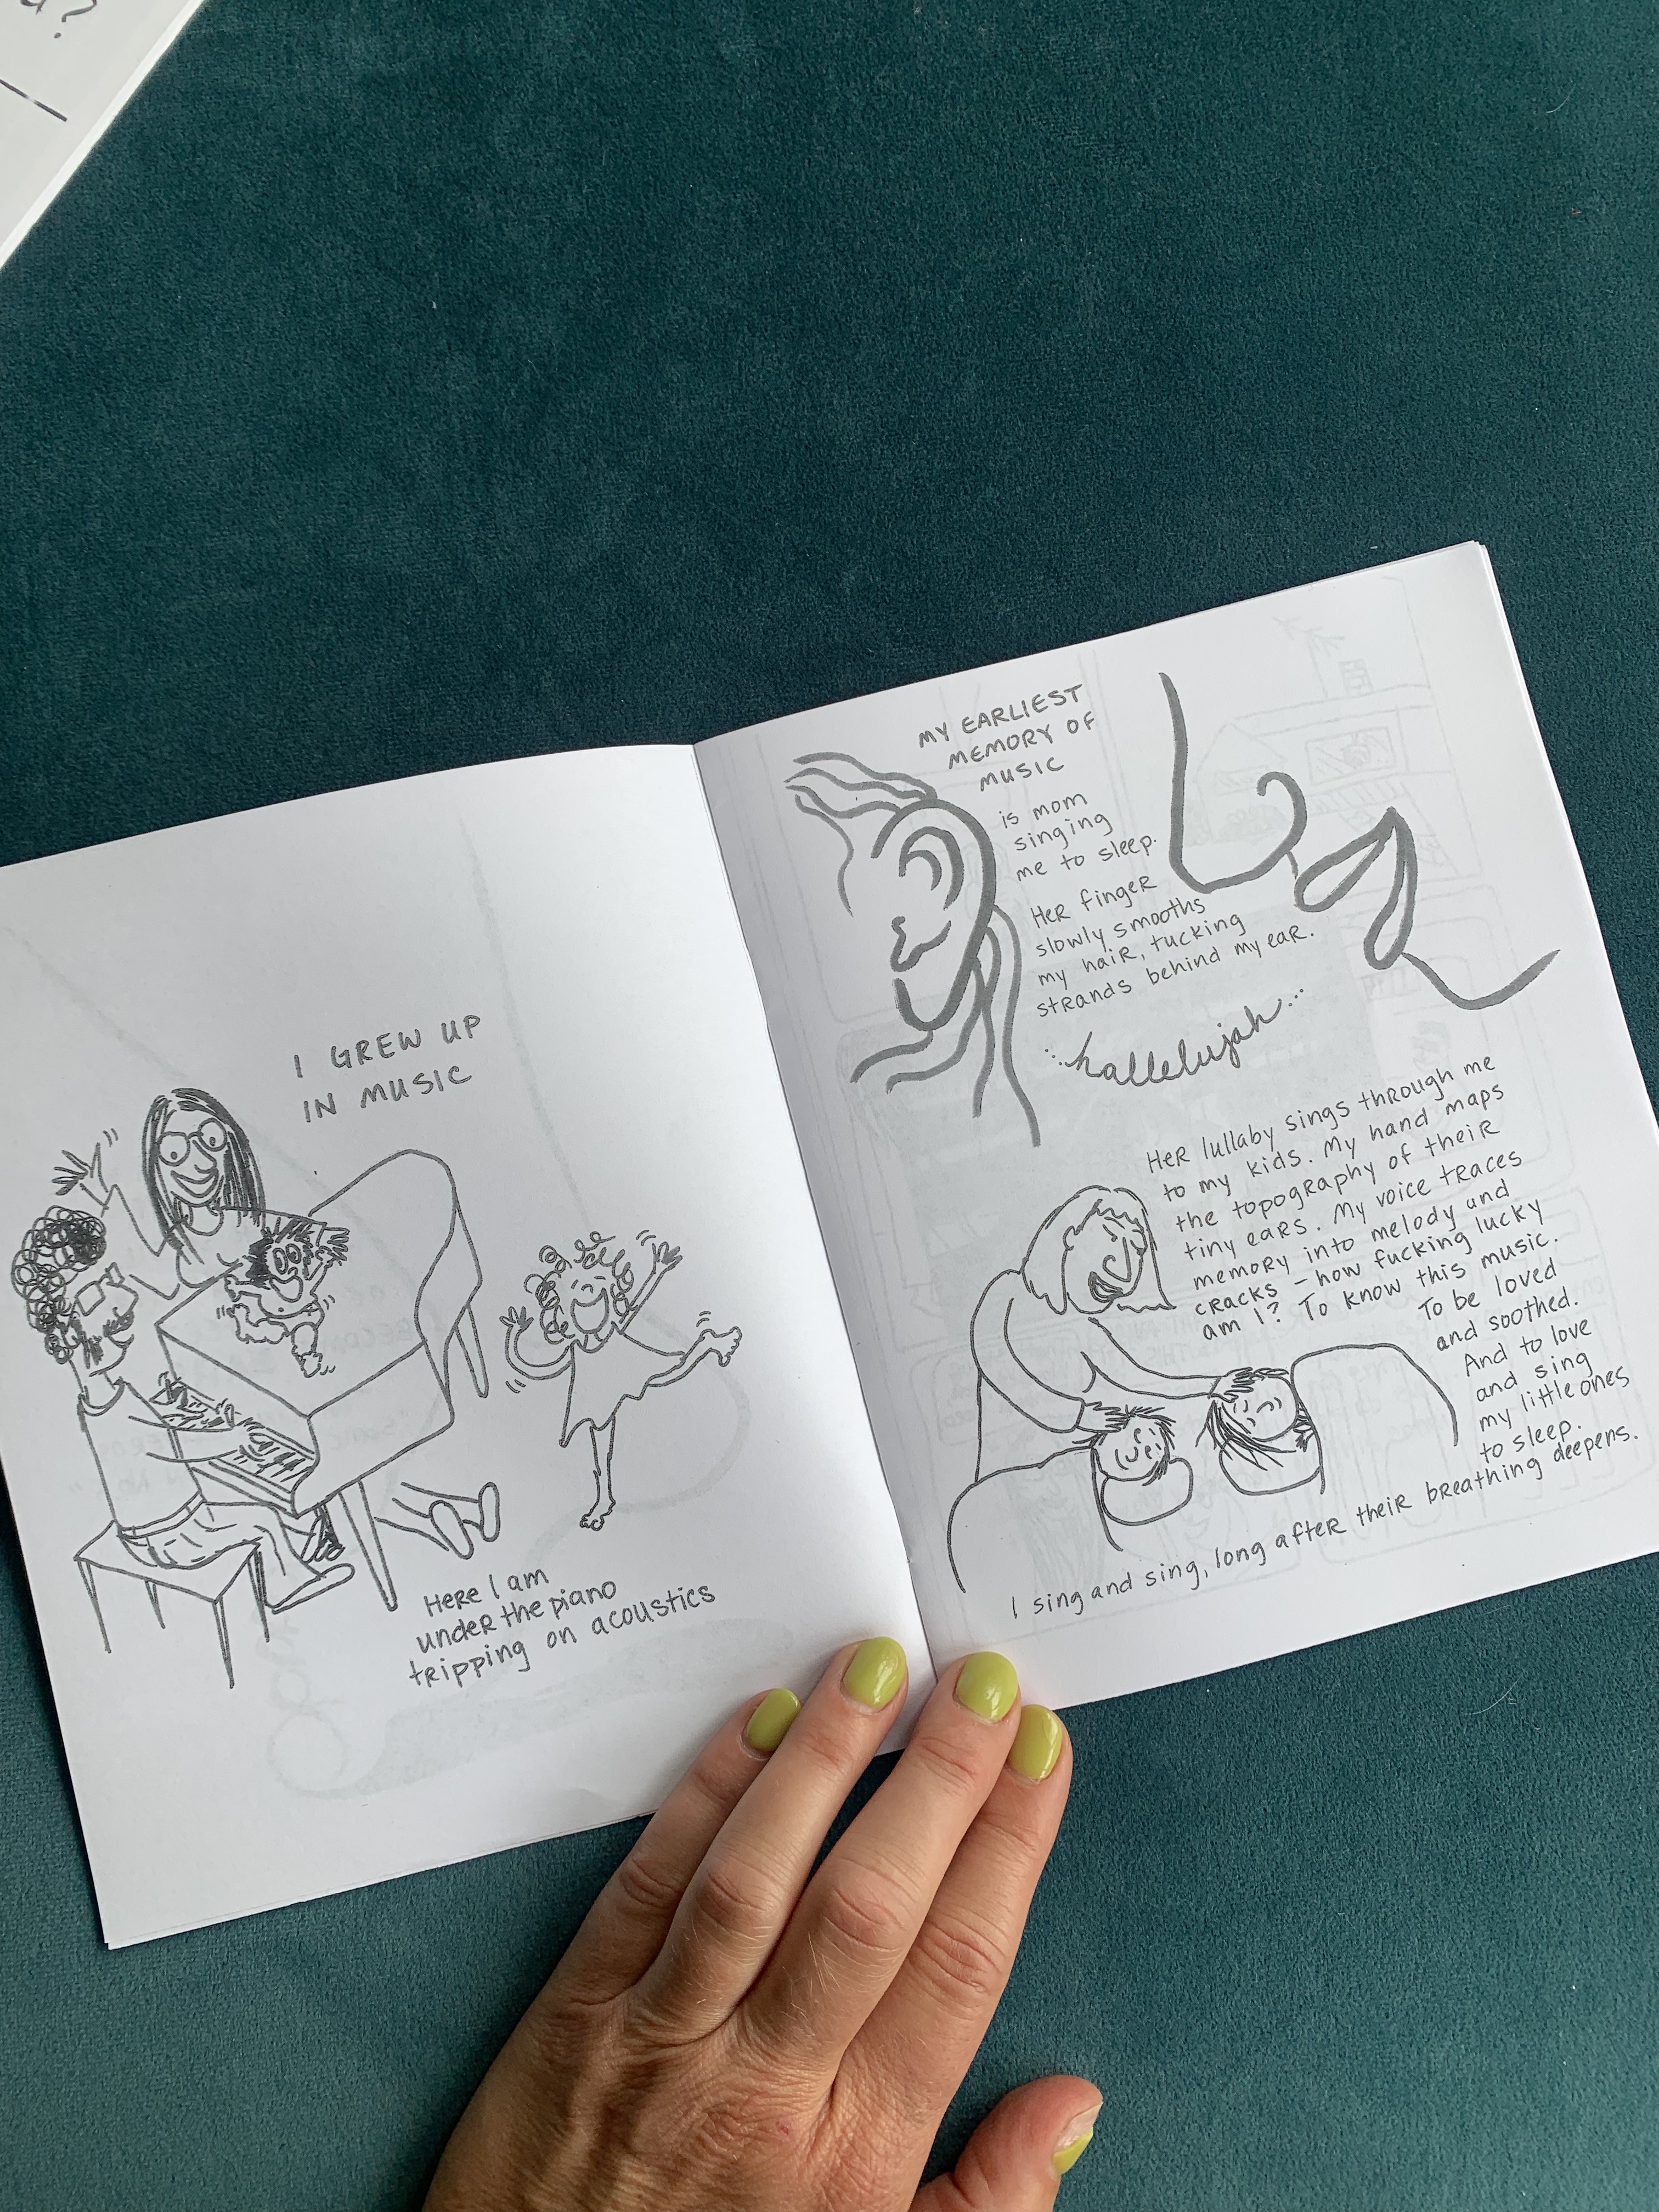 I GREW UP
IN MUSIC
Here I am
under the piano
tripping on acoustics
MY EARLIEST
MEMORY OF
MUSIC
is mom
singing
me to sleep.
Her finger
slowly smooths
my hair, tucking
strands behind my ear.
...hallelujah...
Her lullaby sings through me
to my kids. My hand maps
the topography of their
tiny ears. My voice traces
memory into melody and
cracks – how fucking lucky
am I? To know this music.
To be loved
and soothed.
And to love
and sing
my little ones
to sleep.
I sing and sing, long after their breathing deepens.